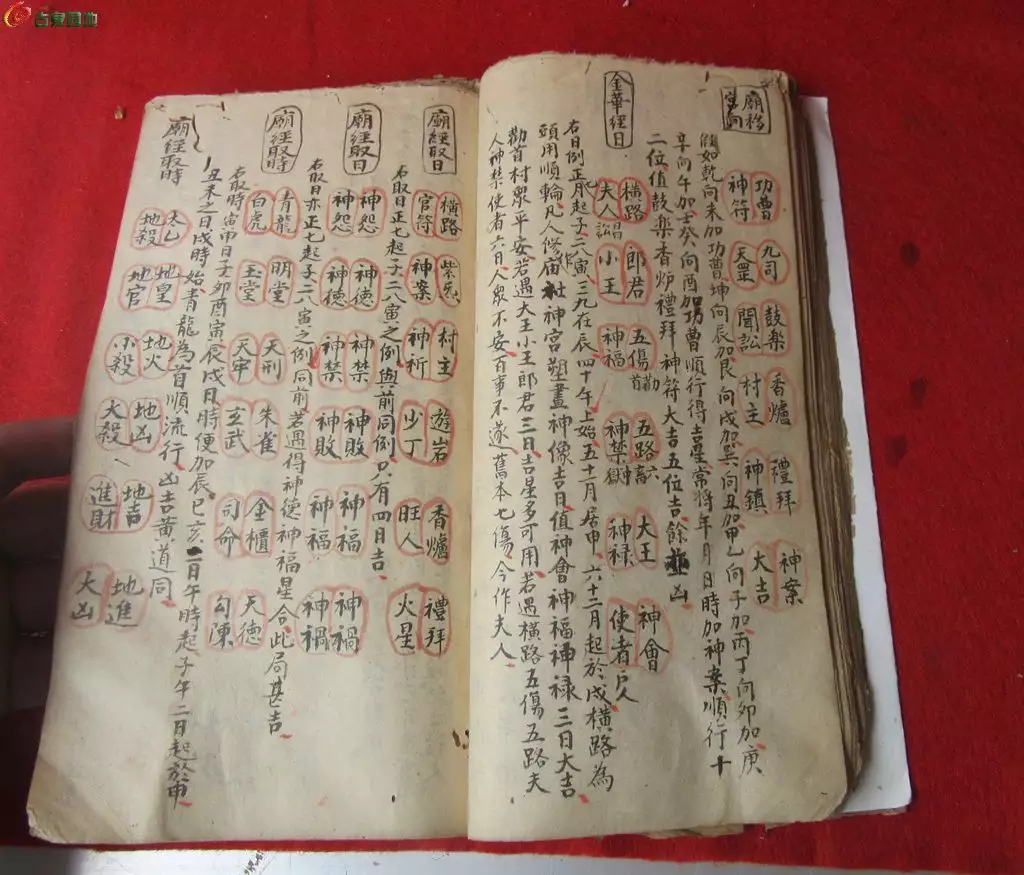 廟移宮向
功曹 九司 鼓樂 香爐 禮拜 神案
神符 天罡 聞訟 村主 神鎮 大吉
假如乾向未加功曹坤向辰加艮向戌加巽向丑加甲乙向子加丙丁向卯加庚
辛向午加壬癸向酉加功曹順行得吉星常將年月日時加神案順行十
二位值鼓樂香炉禮拜神符大吉五位吉餘並凶
金華經日
橫路 郎君 五傷 五路 大王 神會
夫人 小王 神福 神禁 神禄 使者
右日例正七月起子二八寅三九在辰四十午上始五十一月居申六十二月起於戌橫路為
頭用順輪凡人修廟社神宮塑畫神像吉日值神會神福神禄三日大吉
勸首村眾平安若遇大王小王郎君三日吉星多可用若遇橫路五傷五路夫
人神禁使者六日人眾不安百事不遂舊本七傷今作夫人
廟經取日
橫路 紫炁 村主 遊岩 香爐 禮拜
官符 神案 神祈 少丁 旺人 火星
右取日正七起子二八寅之例與前同例只有四日吉
廟經取日
神怨 神德 神禁 神敗 神福 神禍
神怨 神德 神禁 神敗 神福 神禍
右取日亦正七起子二八寅之例同前若遇得神德神福星合此局甚吉
廟經取時
青龍 明堂 天刑 朱雀 金櫃 天德
白虎 玉堂 天牢 玄武 司命 勾陳
右取時寅申日子卯酉寅辰戌日時便加辰巳亥二日午時起子午二日起於申
丑未之日戌時始青龍為首順流行凶吉黃道同
廟經取時
太乙 地皇 地火 地凶 地吉 地進
地殺 地官 小殺 大殺 進財 大凶